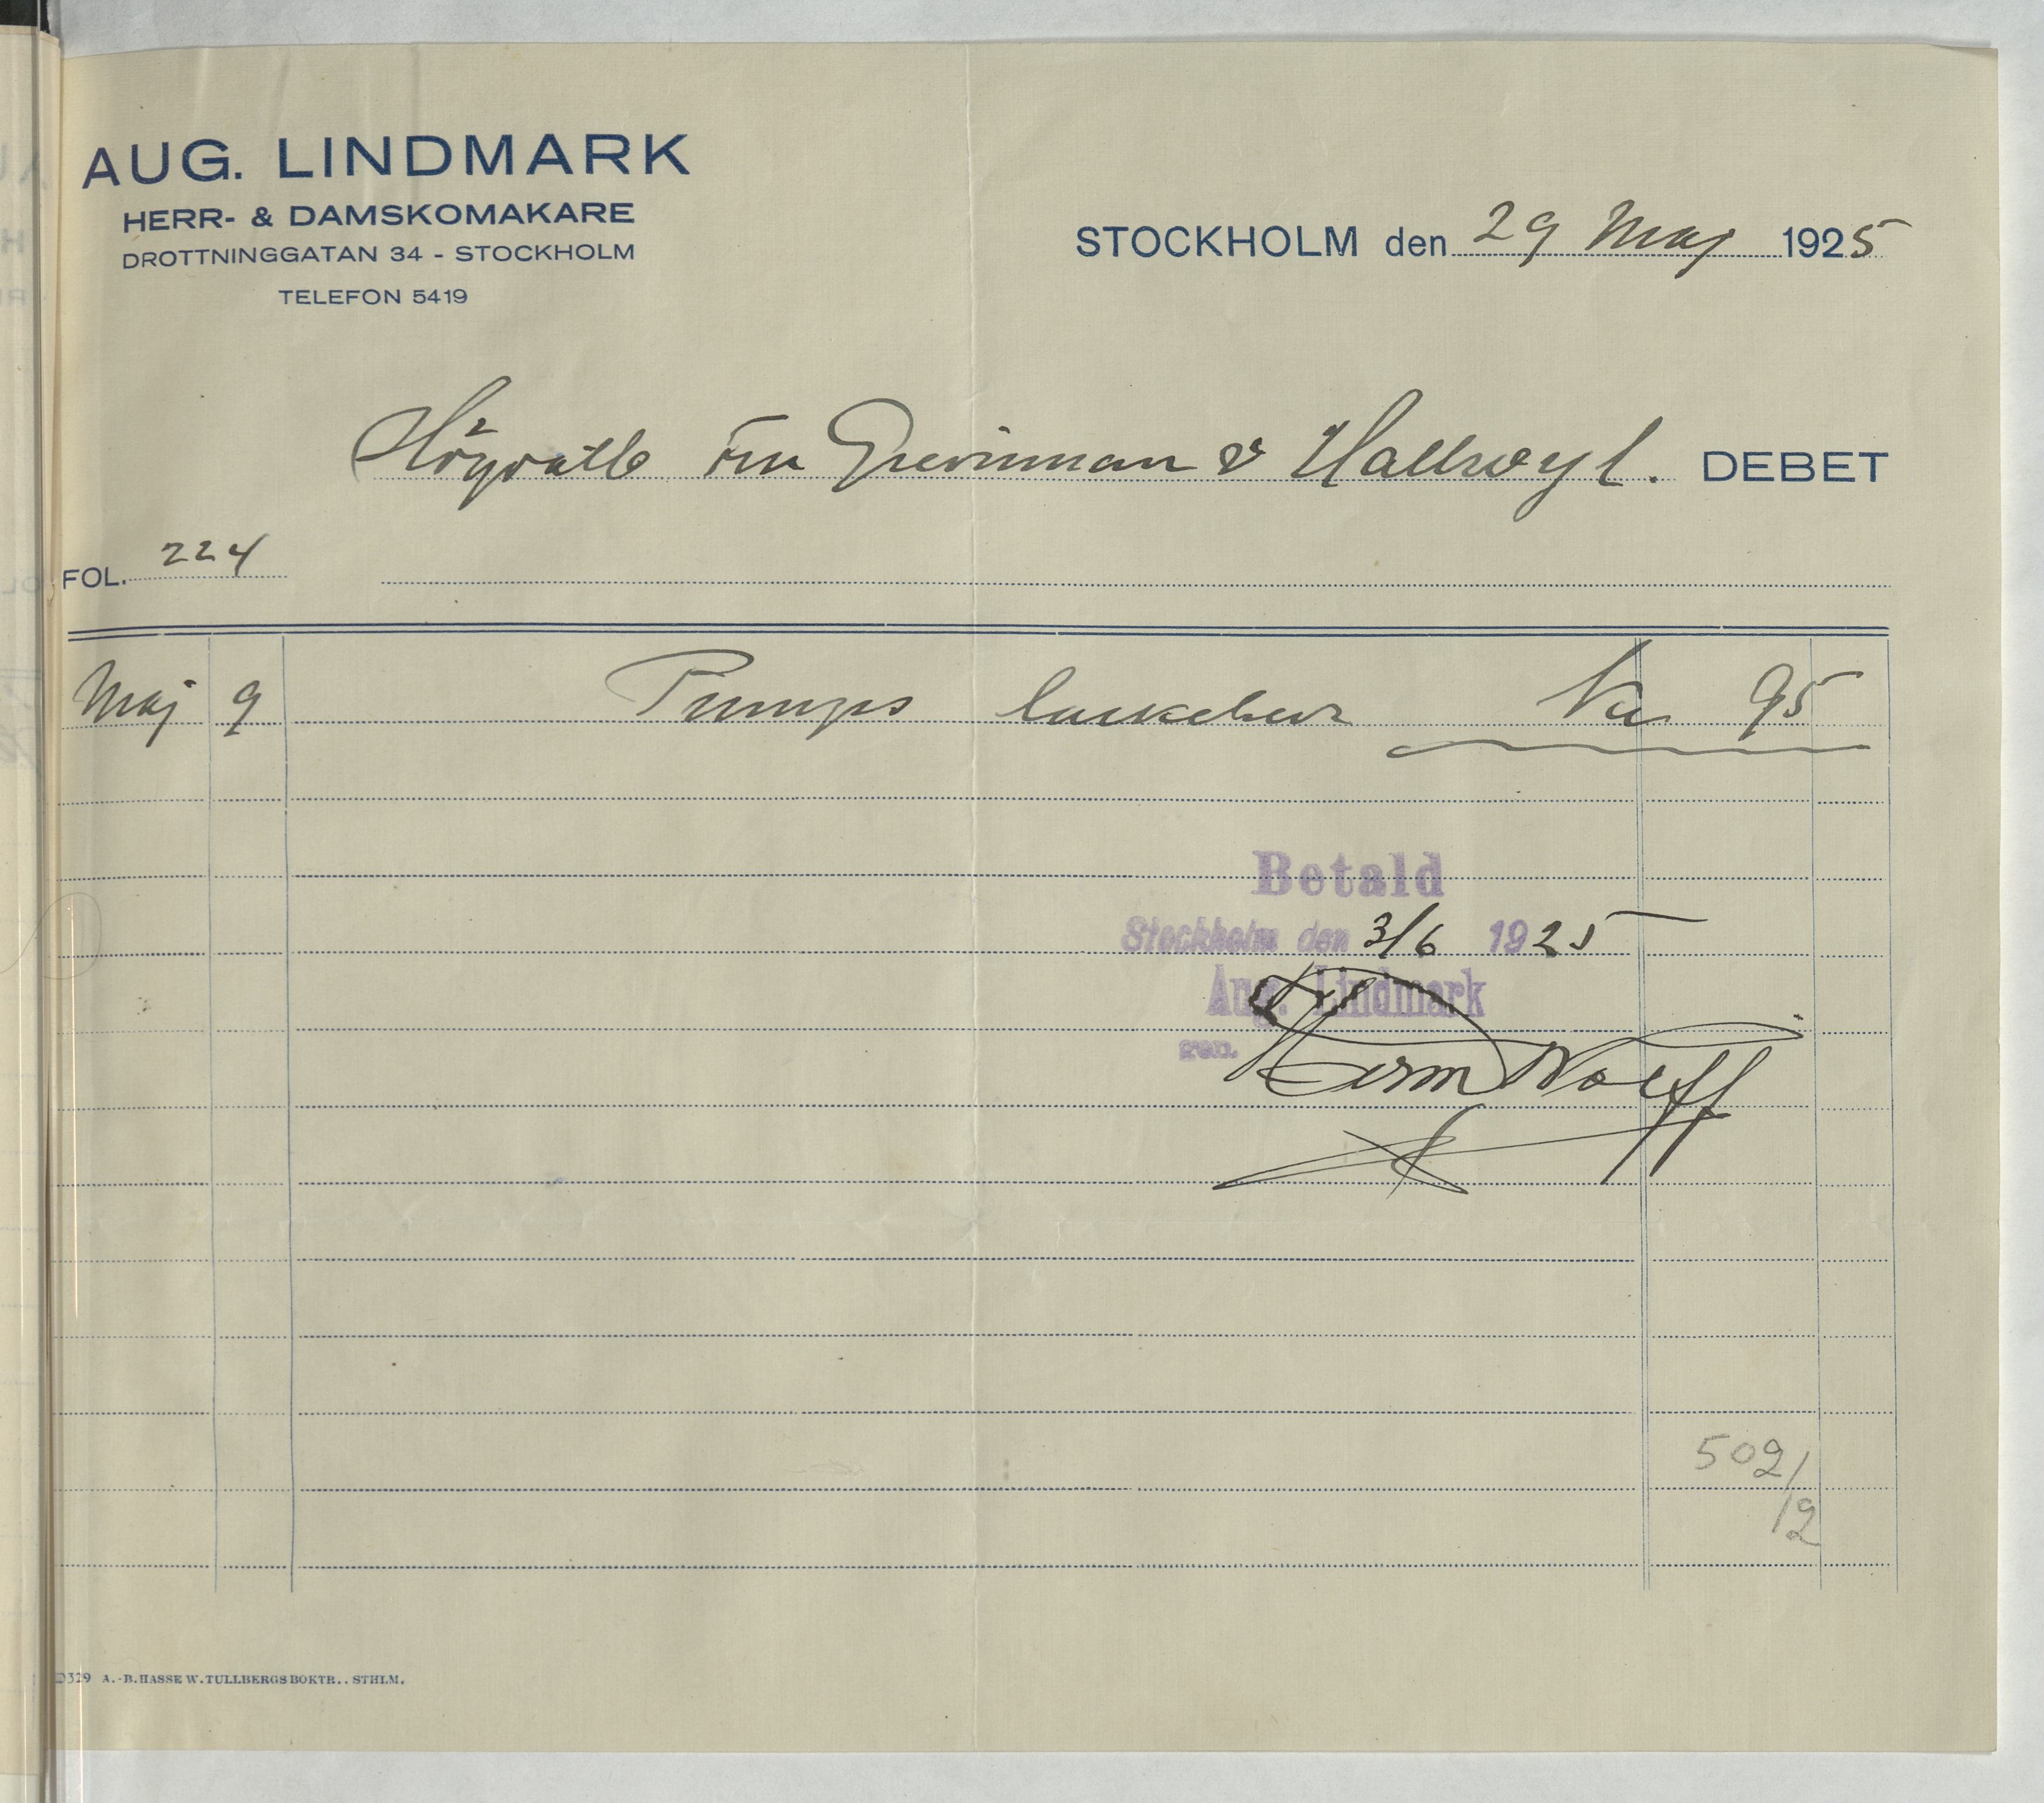 AUG. LINDMARK
HERR- & DAMSKOMAKARE
DROTTNINGGATAN 34 - STOCKHOLM
TELEFON 5419
STOCKHOLM den 29 Maj 1925
Högvälb Fru Grevinnan v Hallwyl. DEBET
FOL. 224
Maj 9 Pumps lackskor Kr 95
Betald
Stockholm den 3/6 1925
Aug. Lindmark
gen. Herm Wolff
502/2
D329 A.-B. HASSE W. TULLBERGS BOKTR., STHLM.